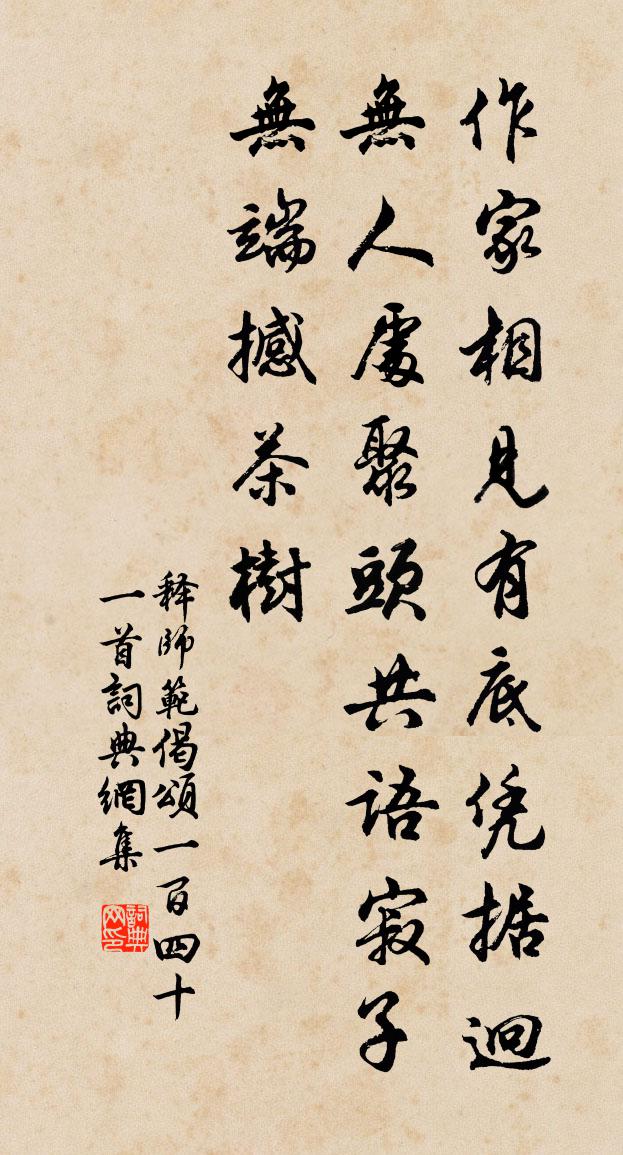 作家相見有底凭据迥
無人處聚頭共語寂子
無端撼茶樹
释師範偈頌一百四十
一首詞典網集
詞典网印